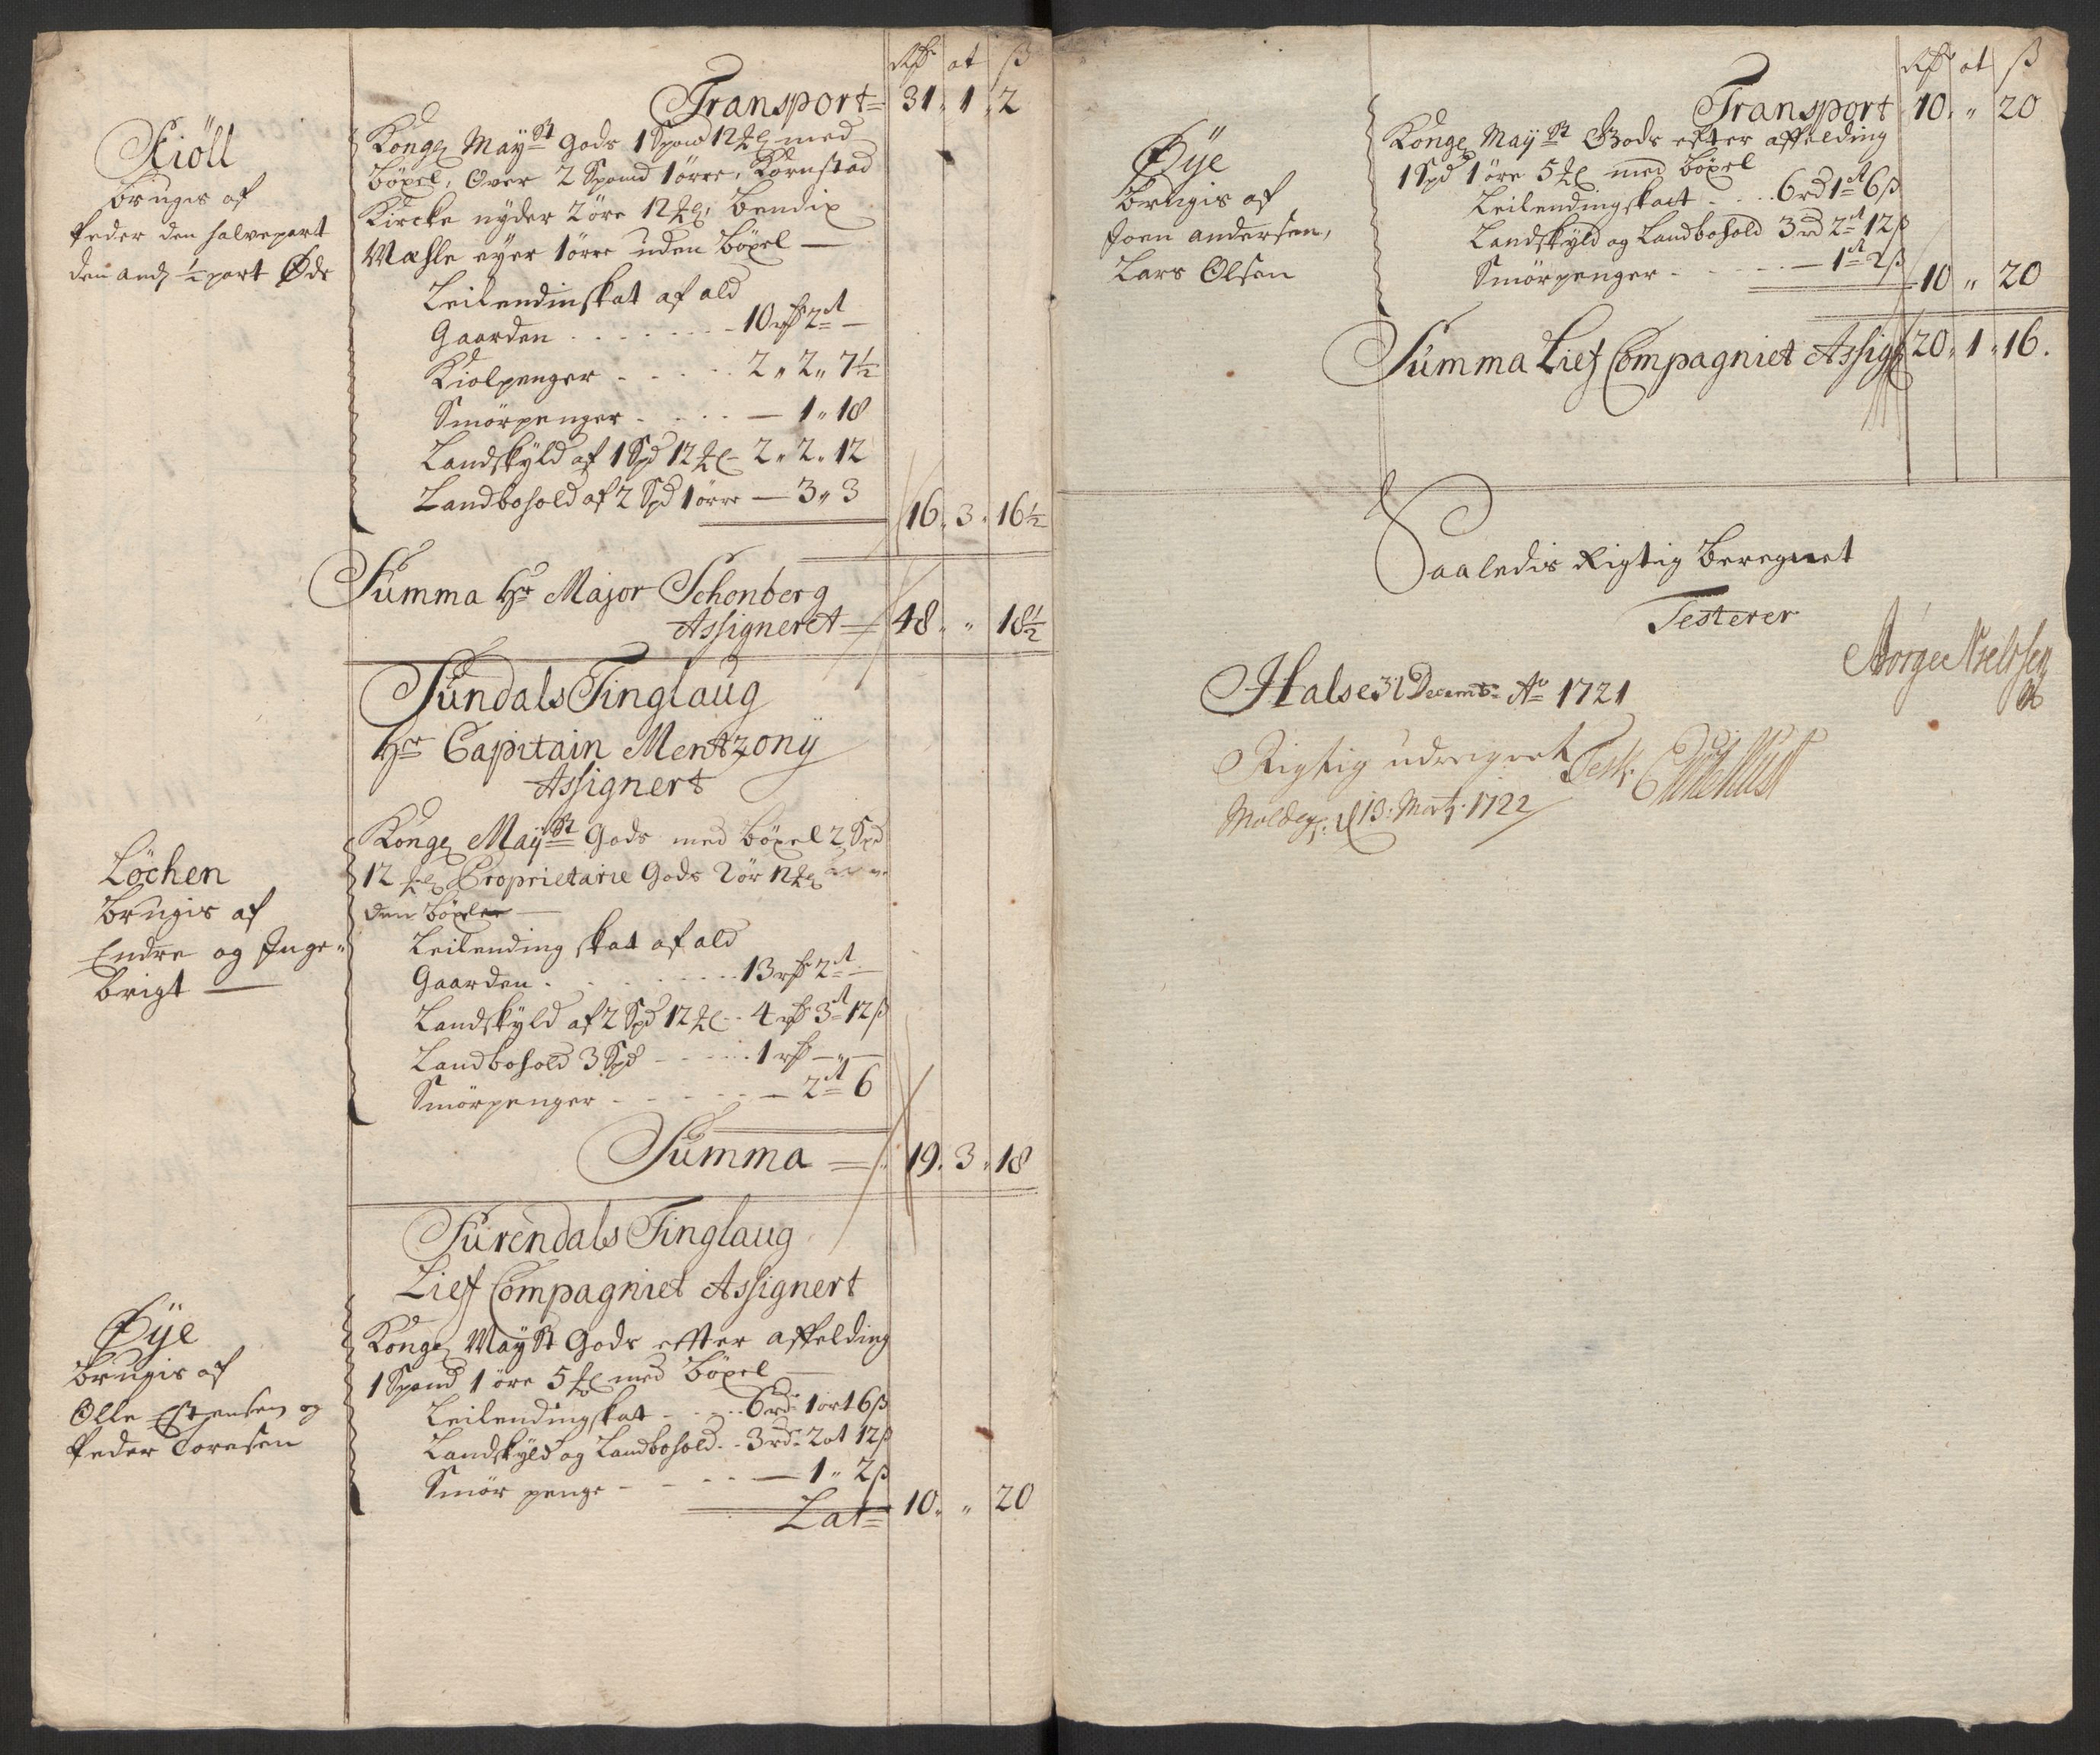 Rdr ort ß
Transport= 31. 1. 2
Kiöll
bruges af
Peder den halvepart
den and ½ part Øde
Kong May.st Gods 1 Spand 12 mrk med
böxel, Over 2 Spand 1 örre, Kornstad
Kircke nyder 2 öre 12 mrk, Bendix
Mæhle eyer 1 örre uden böxel —
Leilendinskat af ald
Gaarden . . . . . . 10 rdr 2 ort —
Kiolpenger - - - - - 2 " 2 " 7½
Smörpenger - - - - — 1 " 18
Landskÿld af 1 Spd 12 mrk - 2 " 2 " 12
Landbohold af 2 Spd 1 örre — 3 " 3
16. 3. 16½
Summa Hr Major Schonberg
Assigneret = 48. " 18½
Sundals Tinglaug
Hr Capitain Mentzonÿ
Assignert
Löchen
brugis af
Endre og Inge-
brigt —
Kong Maÿ.st Gods med böxel 2 Spd
12 mrk Proprietarie Gods 2 ör 12 mrk
den böxler —
Leilending skat af ald
Gaarden . . . . . . 13 rdr 2 ort —
Landskÿld af 2 Spd 12 mrk - 4 rdr 3 ort 12 ß
Landbohold 3 Spd - - - - 1 rdr — " —
Smörpenger - - - - - — 2 ort 6
Summa = 19. 3. 18
Surendals Tinglaug
Lief Compagniet Assignert
Øÿe
brugis af
Olle Estensen og
Peder Toresen
Kong MaÿSt Gods effter affelding
1 Spand 1 öre 5 mrk med böxel —
Leilendingskat - - - 6 rdr 1 ort 6 ß
Landskÿld og Landbohold - - 3 rdr 2 ort 12 ß
Smör penge - - - - — 1 " 2 ß
Lat= 10. " 20
Rdr ort ß
Transport 10. " 20
Øÿe
brugis af
Joen Andersen,
Lars Olsen
Kong Maÿ St Gods efter affelding
1 Spd 1 öre 5 mrk med böxel
Leilendingskatt - - - 6 rd 1 ort 6 ß
Landskÿld og Landbohold 3 rd 2 ort 12 ß
Smörpenger - - - - — 1 ort 2 ß
10 " 20
Summa Lief Compagniet Assig 20. 1. 16.
Saaledis Rigtig beregnet
Testerer
Halse 31 Decemb: Ao 1721
Børge Nielssen
Rigtig udreignet Test.
Molde d 13: Martj: 1722